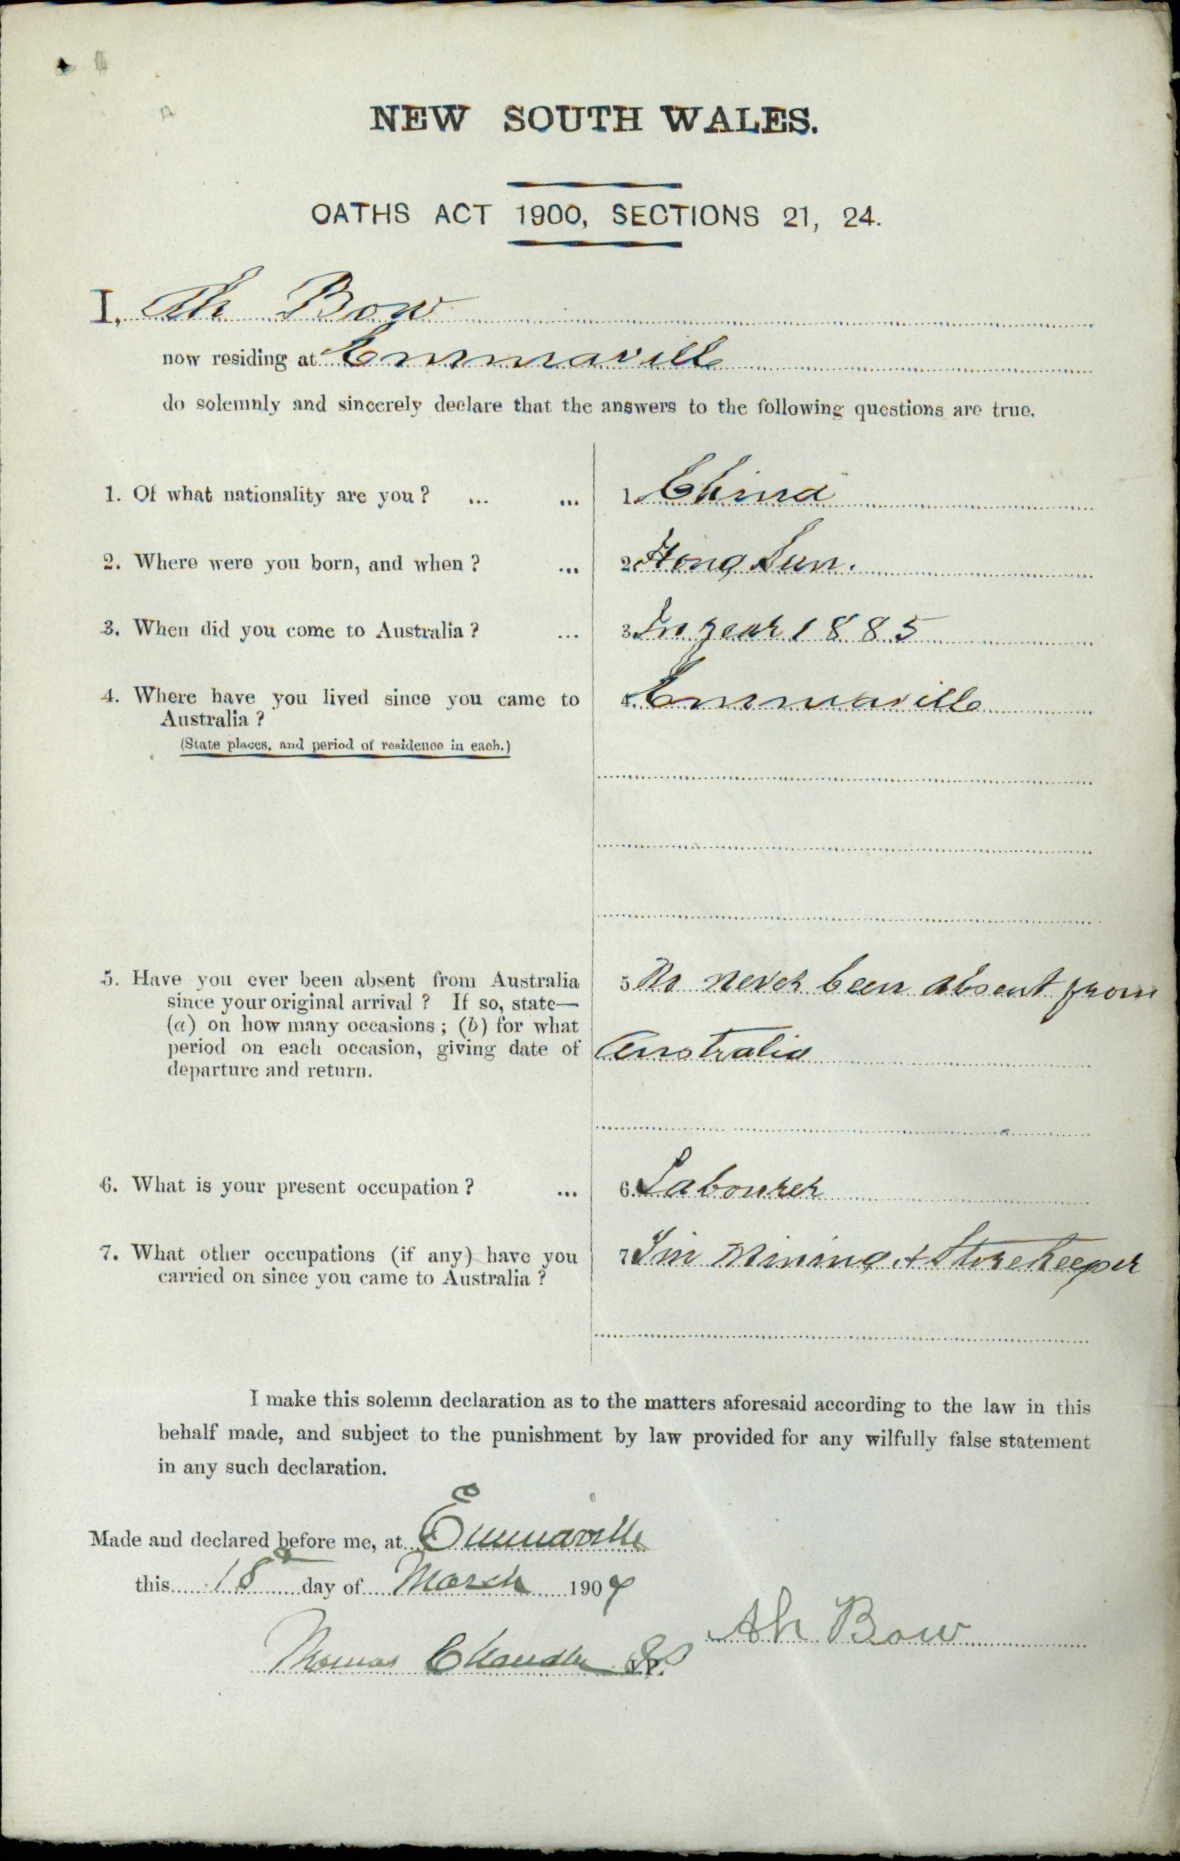 NEW SOUTH WALES.
OATHS ACT 1900, SECTIONS 21, 24.
I, Ah Bow
now residing at Emmaville
do solemnly and sincerely declare that the answers to the following questions are true.
1. Of what nationality are you? ... ... 1. China
2. Where were you born, and when? ... 2. Hong Sun.
3. When did you come to Australia? ... 3. In year 1885
4. Where have you lived since you came to 4. Emmaville
Australia?
(State places, and period of residence in each.)
5. Have you ever been absent from Australia 5. No never been absent from
since your original arrival? If so, state—
(a) on how many occasions; (b) for what
period on each occasion, giving date of Australia
departure and return.
6. What is your present occupation? ... 6. Labourer
7. What other occupations (if any) have you 7. Tin Mining & Storekeeper
carried on since you came to Australia?
I make this solemn declaration as to the matters aforesaid according to the law in this
behalf made, and subject to the punishment by law provided for any wilfully false statement
in any such declaration.
Made and declared before me, at Emmaville
this 18 day of March 1907
Ah Bow
Thomas Chandler J.P.